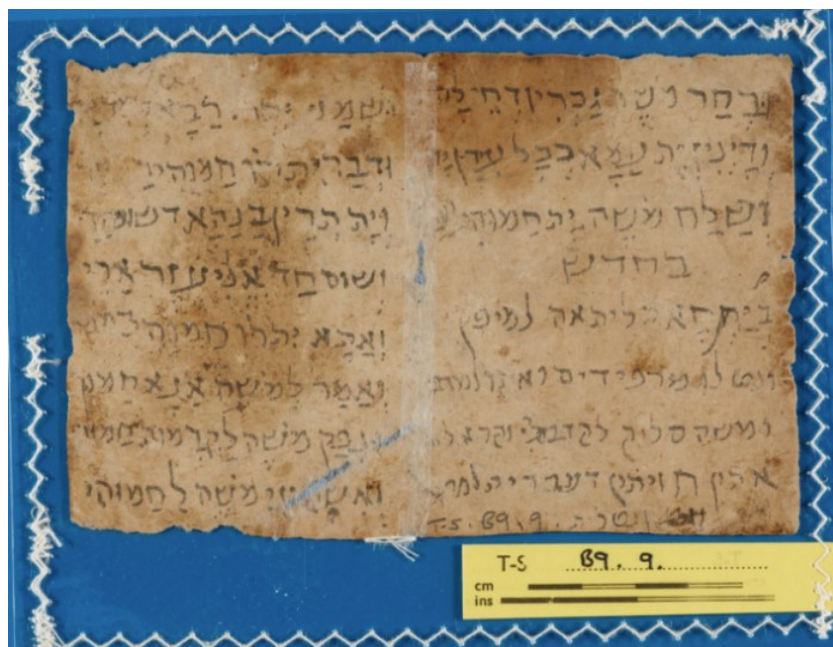 וּבְחַר מֹשֶׁה גֻּבְרִין דְחֵילָא
וְדָיְנִין יָת עַמָּא בְּכָל עִדָּן
וְשַׁלַּח מֹשֶׁה יָת חֲמוּהִי
בחדש
בְּיַרְחָא תליתאה למיפק
ונטלו מרפידים ואתו
ומשה סליק לקדם וקרא
אתון חזיתון דעבדית
T-S. B9.9.
ושמע יתרו רַבָּא
וּדְבַר יתרו חֲמוּהִי
וְיָת תְּרֵין בְּנַהָא דשום
ושום חַד אֱלִיעֶזֶר אֲרֵי
וַאֲתָא יתרו חֲמוּהִי
וַאֲמַר לְמֹשֶׁה אֲנָא חמוך
וּנְפַק מֹשֶׁה לְקַדָּמוּת חמוהי
וְאִשְׁתָּעִי מֹשֶׁה לַחֲמוּהִי
T-S B9. 9.
cm
ins